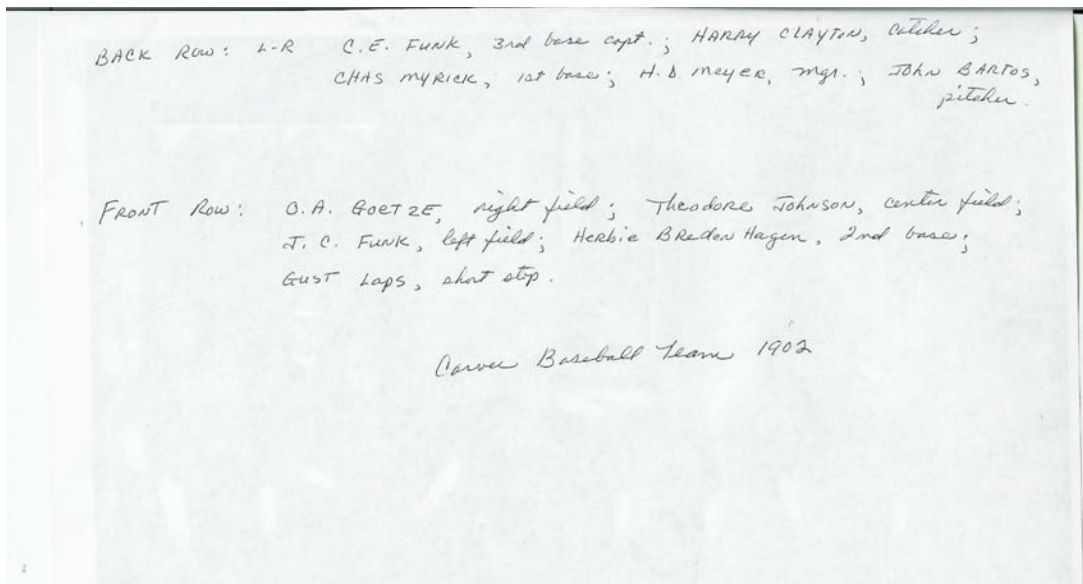 BACK ROW: L-R C.E. FUNK, 3rd base capt.; HARRY CLAYTON, catcher;
CHAS MYRICK, 1st base; H.D. MEYER, mgr.; JOHN BARTOS,
pitcher.
FRONT ROW: O.A. GOETZE, right field; Theodore JOHNSON, center field;
J.C. FUNK, left field; Herbie BReden Hagen, 2nd base;
GUST LAPS, short stop.
Carver Baseball Team 1902